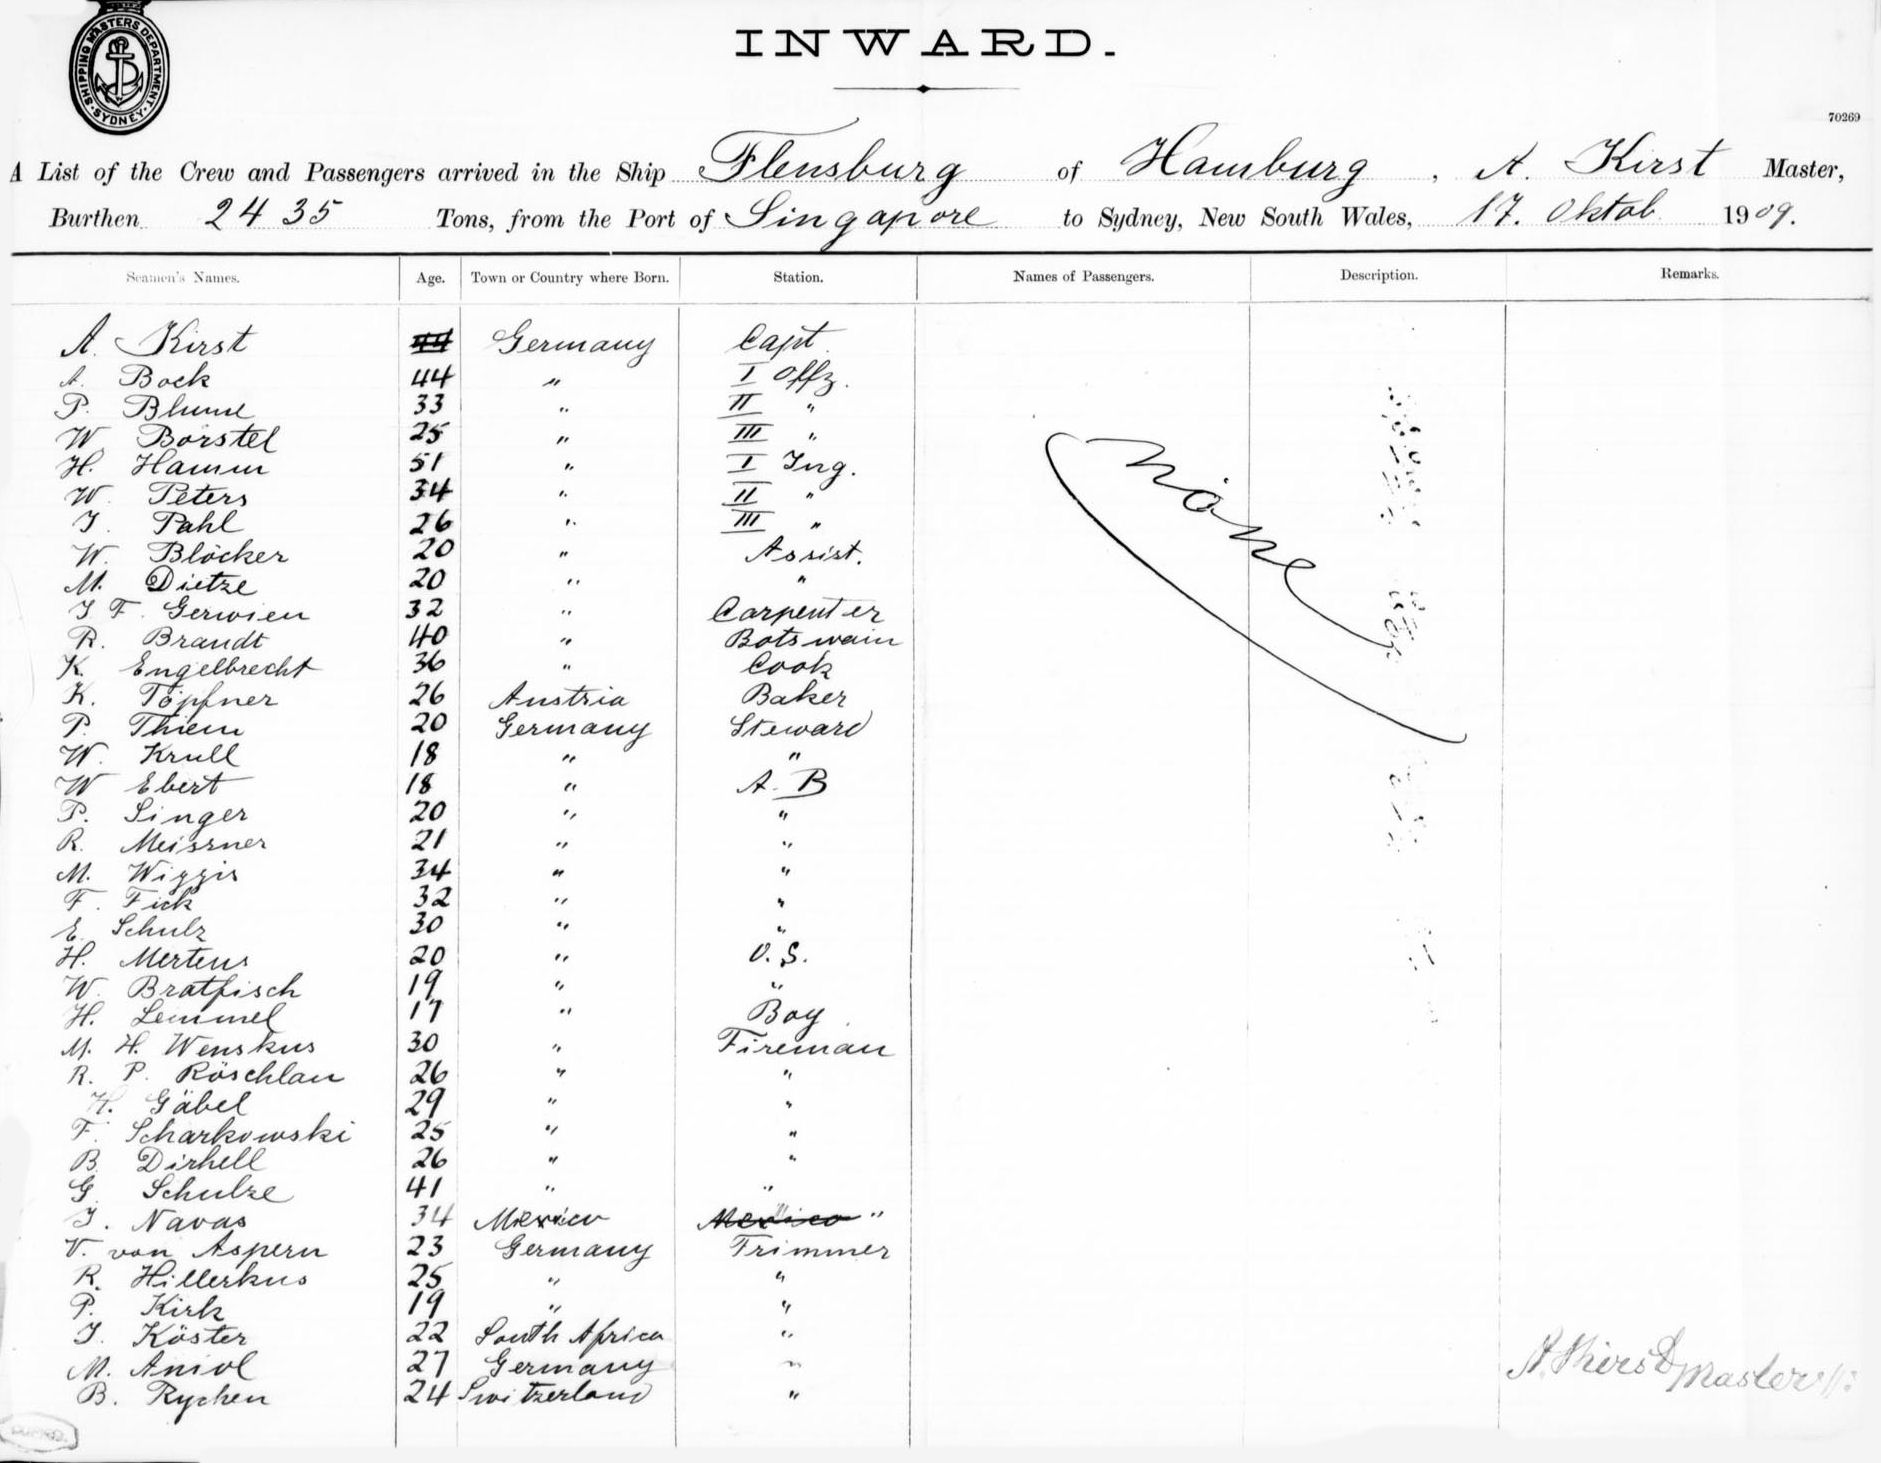 SHIPPING MASTERS DEPARTMENT
SYDNEY
INWARD.
70269
A List of the Crew and Passengers arrived in the Ship Flensburg of Hamburg, A. Kirst Master,
Burthen 2435 Tons, from the Port of Singapore to Sydney, New South Wales, 17. Oktob 1909.
Seamen's Names. Age. Town or Country where Born. Station. Names of Passengers. Description. Remarks.
A. Kirst 44 Germany Capt.
A. Bock 44 " I Offz.
P. Blume 33 " II "
W Borstel 25 " III "
H. Hamm 51 " I Ing.
W. Peters 34 " II "
J. Pahl 26 " III "
W. Blöcker 20 " Assist.
M. Dietze 20 " "
J. F. Gerwien 32 " Carpenter
R. Brandt 40 " Botswain
K. Engelbrecht 36 " Cook
K. Töpfner 26 Austria Baker
P. Thiem 20 Germany Steward
W. Krull 18 " "
W Ebert 18 " A. B
P. Singer 20 " "
R. Meissner 21 " "
M. Wiggis 34 " "
F. Fick 32 " "
E. Schulz 30 " "
H. Mertens 20 " O.S.
W. Bratfisch 19 " "
H. Lemmel 17 " Boy
M. H. Wenskus 30 " Fireman
R. P. Röschlau 26 " "
H. Gäbel 29 " "
F. Scharkowski 25 " "
B. Dirhell 26 " "
G Schulze 41 " "
J. Navas 34 Mexico Mexico "
V. von Aspern 23 Germany Trimmer
R. Hillerkus 25 " "
P. Kirk 19 " "
J. Köster 22 South Africa "
M. Aniol 27 Germany "
B. Rychen 24 Switzerland "
None
A. Kirst Master